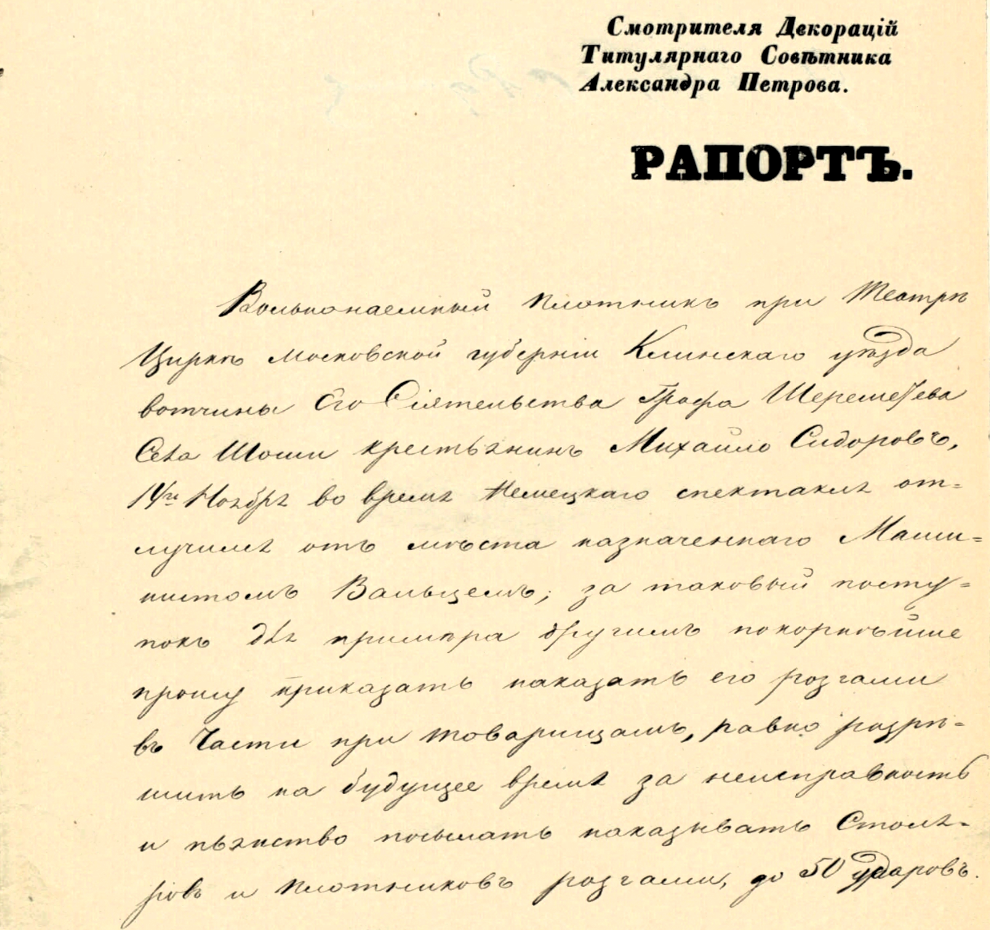 Смотрителя Декорацій
Титулярнаго Совѣтника
Александра Петрова.
РАПОРТЪ.
Вольнонаемный плотникъ при Театрѣ
Циркѣ Московской губерніи Клинскаго уѣзда
вотчины Его Сіятельства Графа Шереметева
Села Шоши крестьянинъ Михайло Сидоровъ,
14го Ноября во время Немецкаго спектакля от=
лучился отъ мѣста назначеннаго Маши=
нистомъ Вальцемъ; за таковый посту=
покъ для примѣра другимъ покорнѣйше
прошу приказать наказать его розгами
въ Части при товарищахъ, равно разрѣ=
шить на будущее время за неисправность
и пьянство посылать наказывать Столя=
ровъ и плотниковъ розгами, до 50 ударовъ.